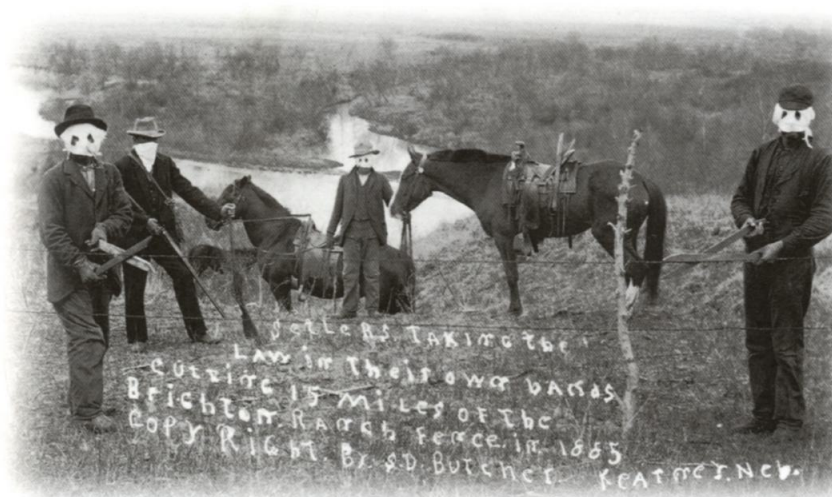 Settlers taking the
Law in their own hands
cutting 15 miles of the
Brighton Ranch fence in 1885
Copy Right By S.D. Butcher Kearney. Neb.